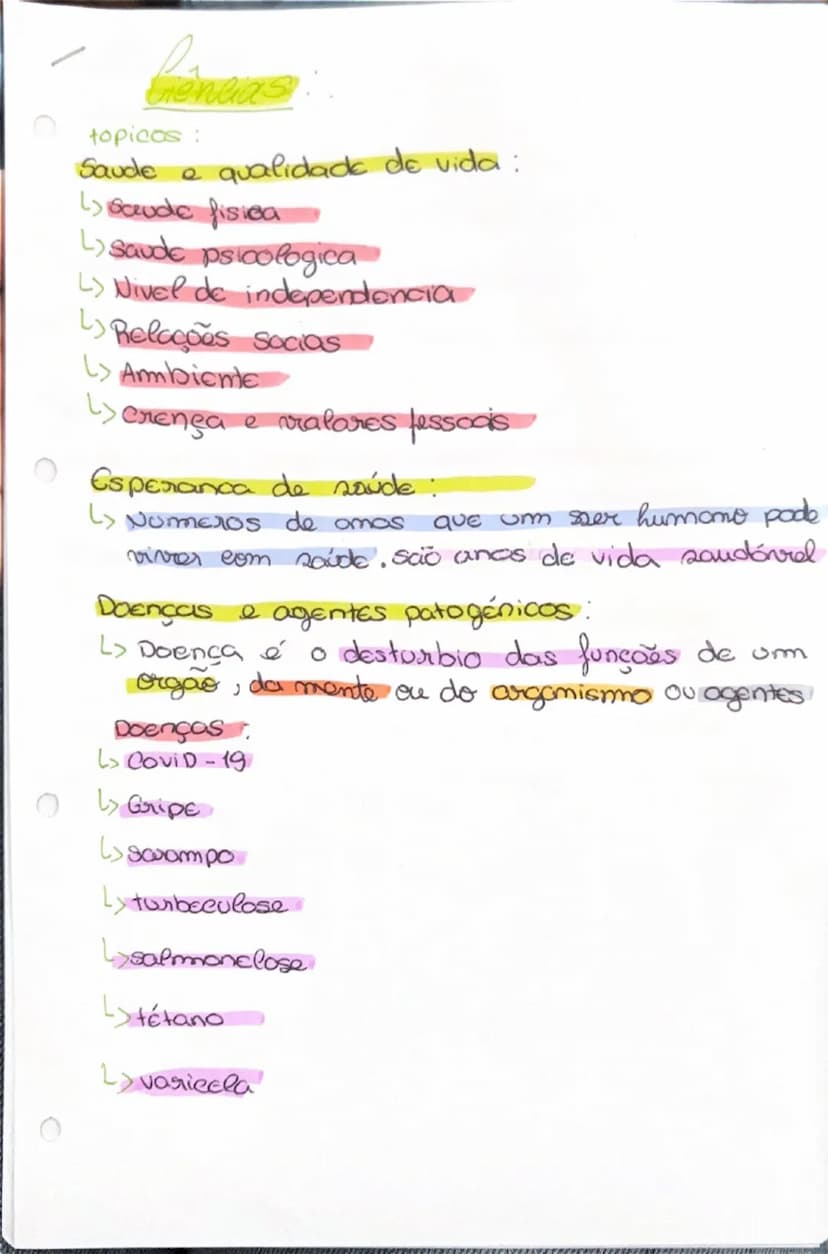 Ciências:
topicos:
Saude e qualidade de vida:
↳ Saude fisica
↳ Saude psicologica
↳ Nivel de independencia
↳ Relações socias
↳ Ambiente
↳ Crença e valores pessoais
Esperanca de saúde:
↳ Números de anos que um ser humano pode
viver com saúde. são anos de vida saudável
Doenças e agentes patogénicos:
↳ Doença é o desturbio das funções de um
orgão, da mente ou do organismo ou agentes
Doenças:
↳ Covid-19
↳ Gripe
↳ sarampo
↳ turbeculose
↳ salmonelose
↳ tétano
↳ varicela